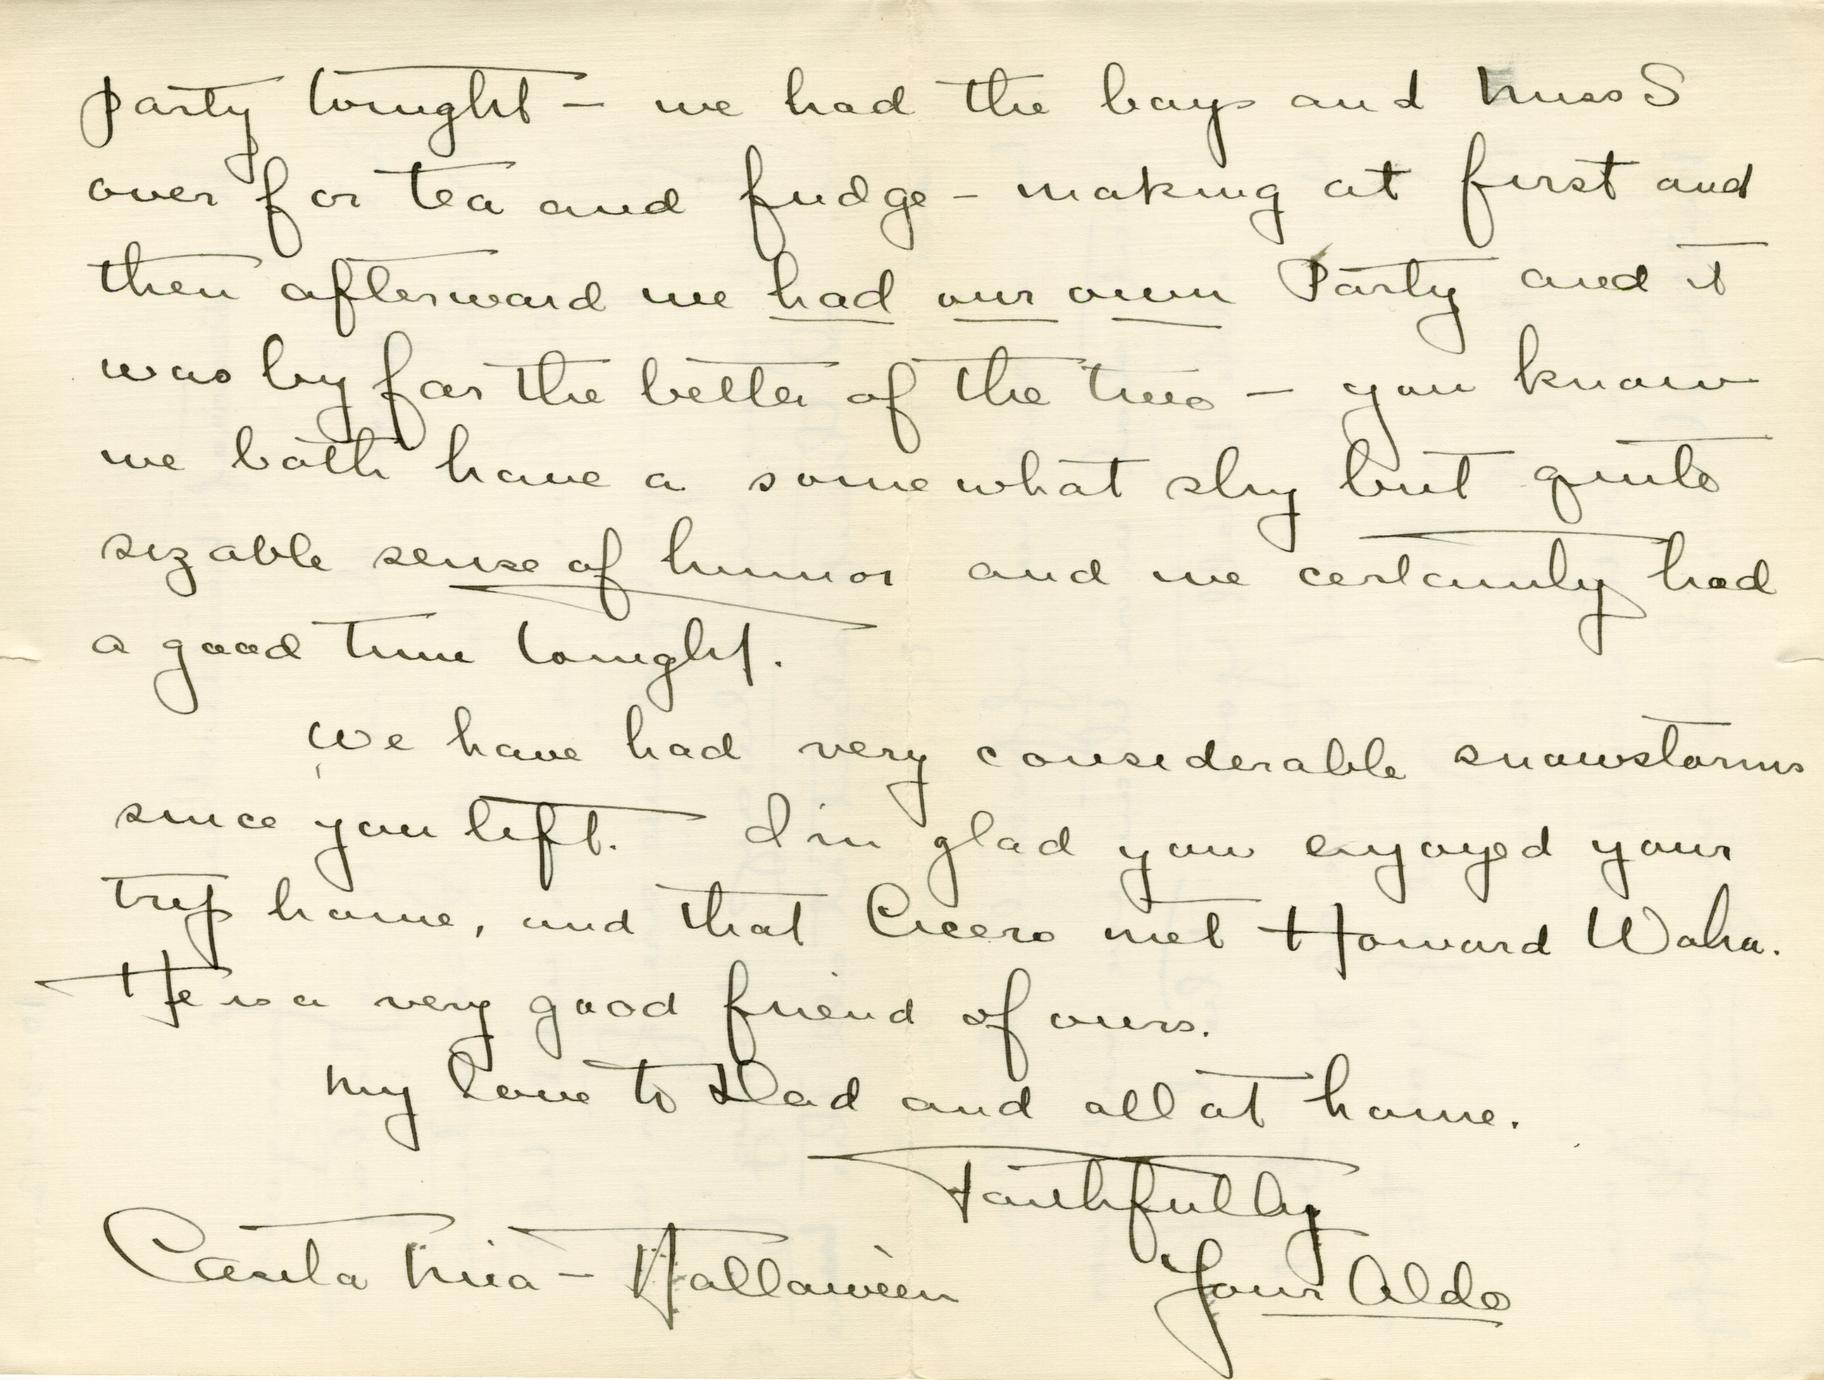 party tonight – we had the boys and Miss S
over for tea and fudge – making at first and
then afterward we had our own Party and it
was by far the better of the two – you know
we both have a somewhat shy but quite
sizable sense of humor and we certainly had
a good time tonight.
We have had very considerable snowstorms
since you left. I'm glad you enjoyed your
trip home, and that Cicero met Howard Waha.
He is a very good friend of ours.
My love to Dad and all at home.
Faithfully
Casita Mia – Hallowe'en Your Aldo